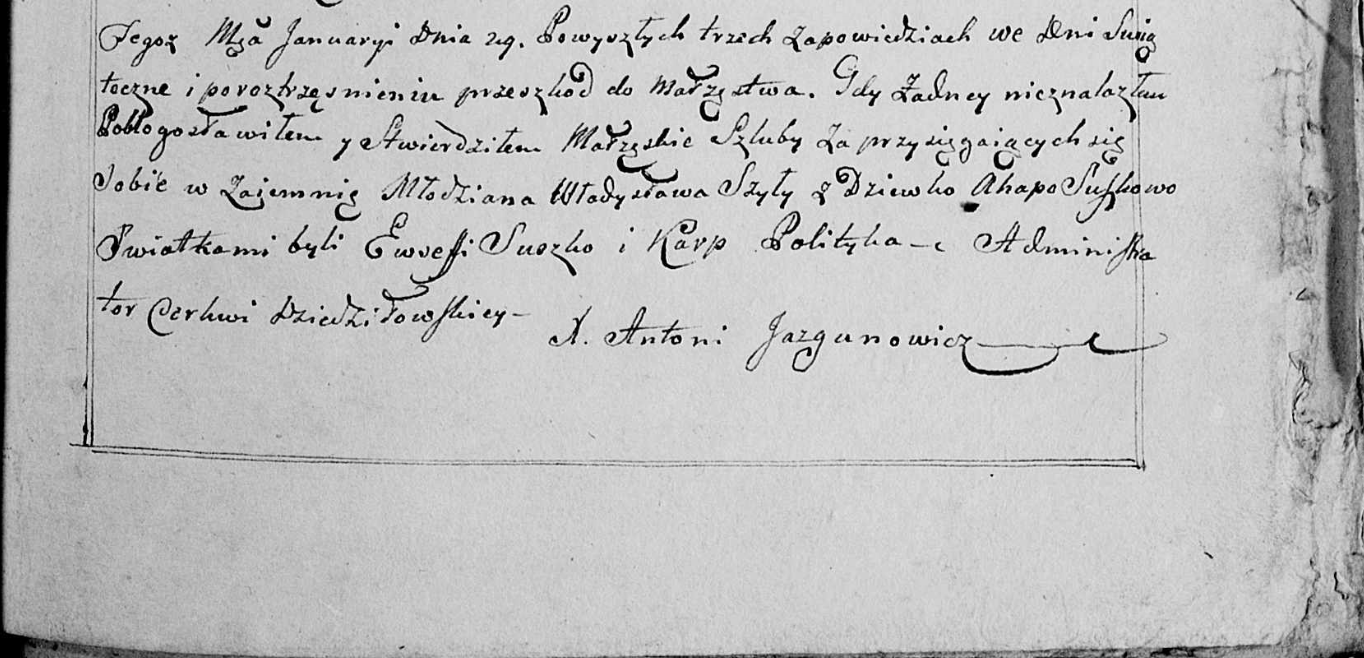 Tegoż Mca Januaryi Dnia 29. Po wyszłych trzech Zapowiedziach we Dni Świą
teczne i po roztrząsnieniu przeszkod do Małżęstwa. Gdy Żadney nieznalazłem
Pobłogosławiłem y Stwierdziłem Małżęskie Szluby Za przysięgaiących się
Sobie w Zajemnie Młodziana Władysława Szyły z Dziewko Ahapo Suszkowo
Swiatkami byli Ewsefi Suszko i Karp Polityka Administra
tor Cerkwi Dziedziłowskiey X. Antoni Jazgunowicz